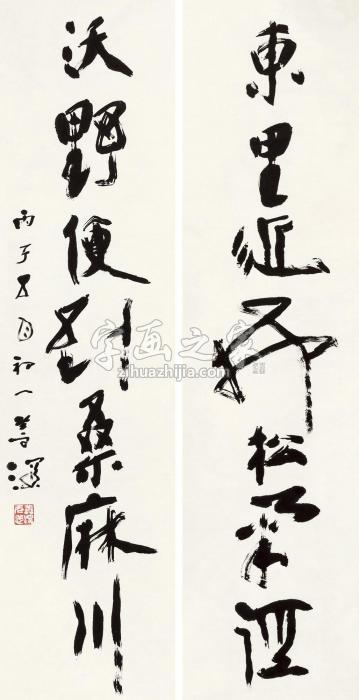 東里近松菊徑
沃野便到桑麻川
丙子五月初一
字画之家
zihuazhijia.com